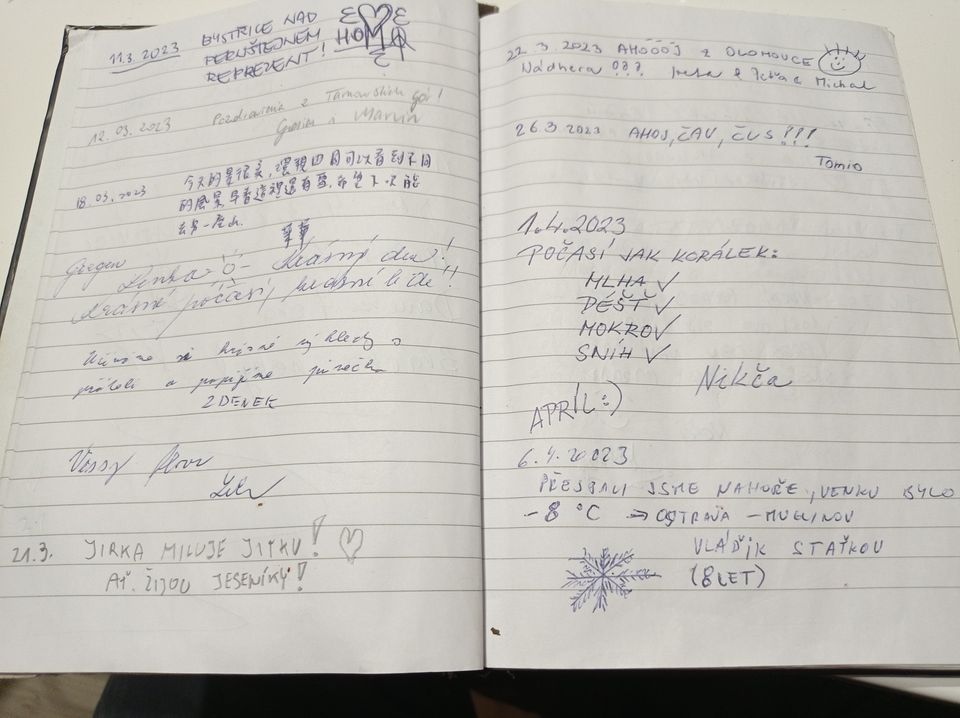 11.3.2023 BYSTŘICE NAD
PERNŠTEJNEM
REPREZENT!
HOM
12.03.2023 Pozdrowienia z Tarnowskich Gór!
Gosia a Marcin
18.03.2023 今天的景很美,沒想四月可以看到不同
的風景,早春這裡還有雪,希望下次能
去另一座山.
Gregen
Lenka Krásný den!
Krásné počasí, krásní lidé!!
Užíváme si krásné výhledy s
přáteli a popíjíme pivečko
ZDENEK
21.3. JIRKA MILUJE JITKU!
AŤ ŽIJOU JESENÍKY!
22.3.2023 AHÓÓÓJ z OLOMOUCE
Nádhera Michal
26.3.2023 AHOJ, ČAV, ČUS!!!
Tomio
1.4.2023
POČASÍ JAK KORÁLEK:
MLHA ✓
DÉŠŤ ✓
MOKRO ✓
SNÍH ✓
Nikča
APRÍL :)
6.4.2023
PŘESPALI JSME NAHOŘE, VENKU BYLO
-8 °C → OSTRAVA - MUGLINOV
VLAĎIK S TAŤKOU
(8 LET)